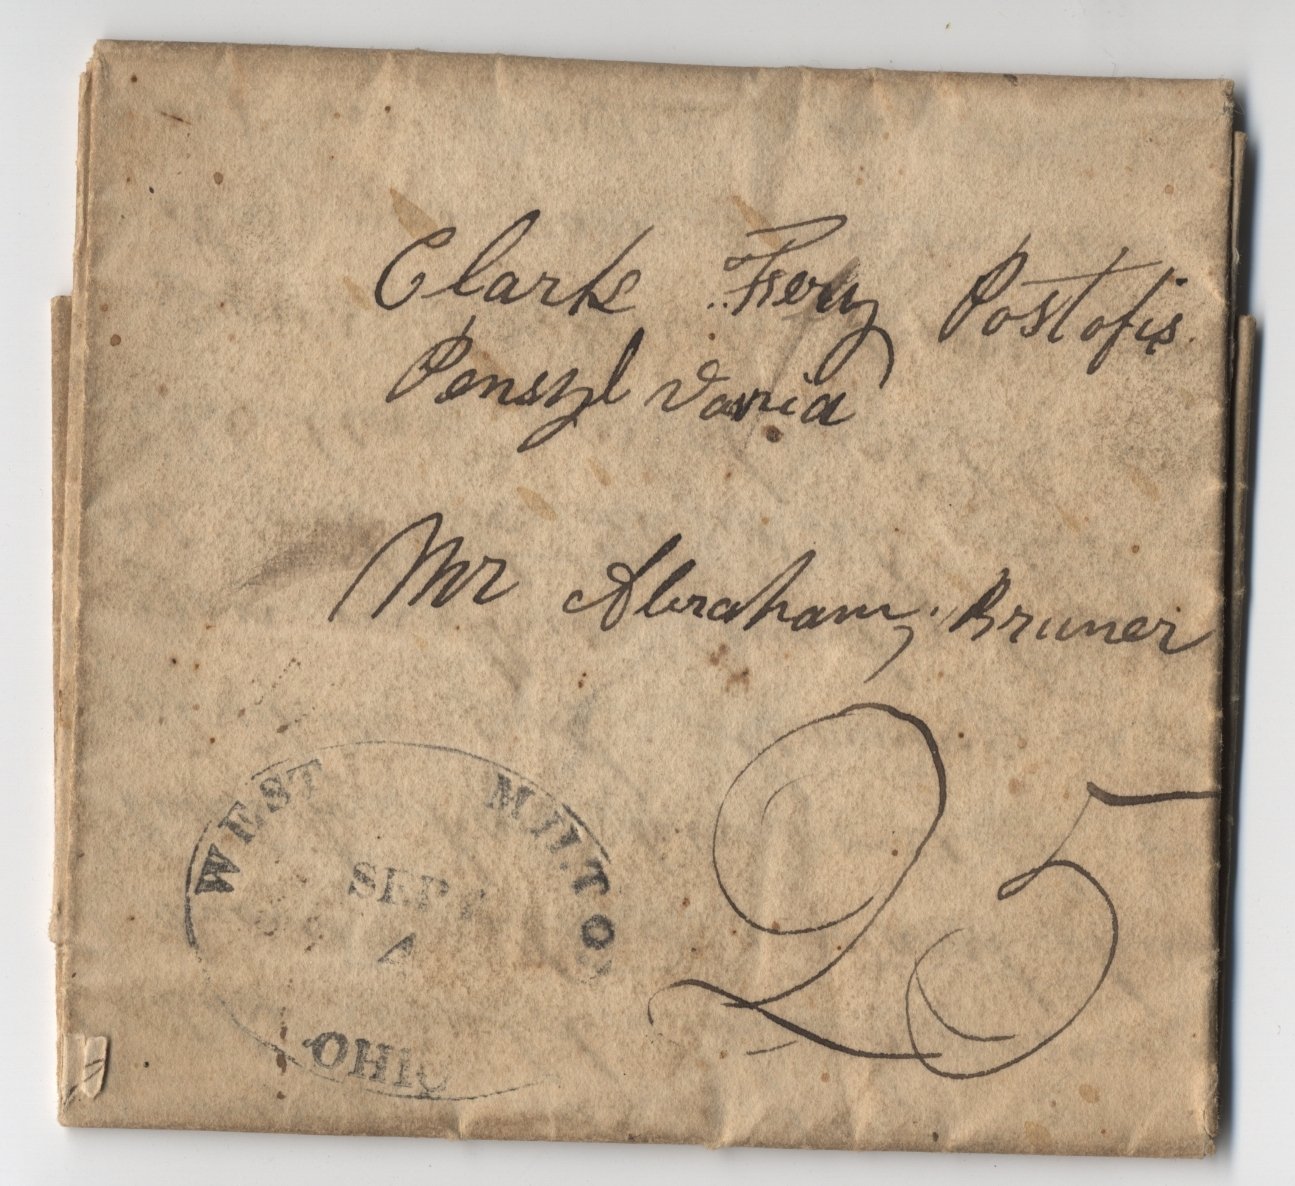 Clark Fiery Postofis
Pensyl vania
Mr Abraham Bruner
25
WEST MILTON
SEPT
4
OHIO